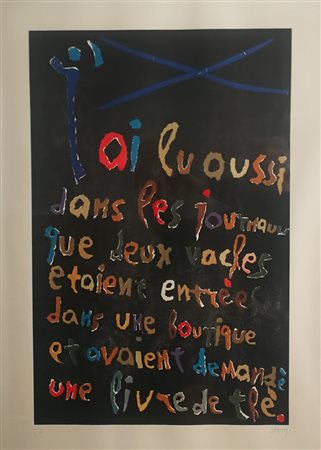 j'ai lu aussi
dans les journaux
que deux vaches
etaient entrées
dans une boutique
et avaient demandé
une livre de thé.